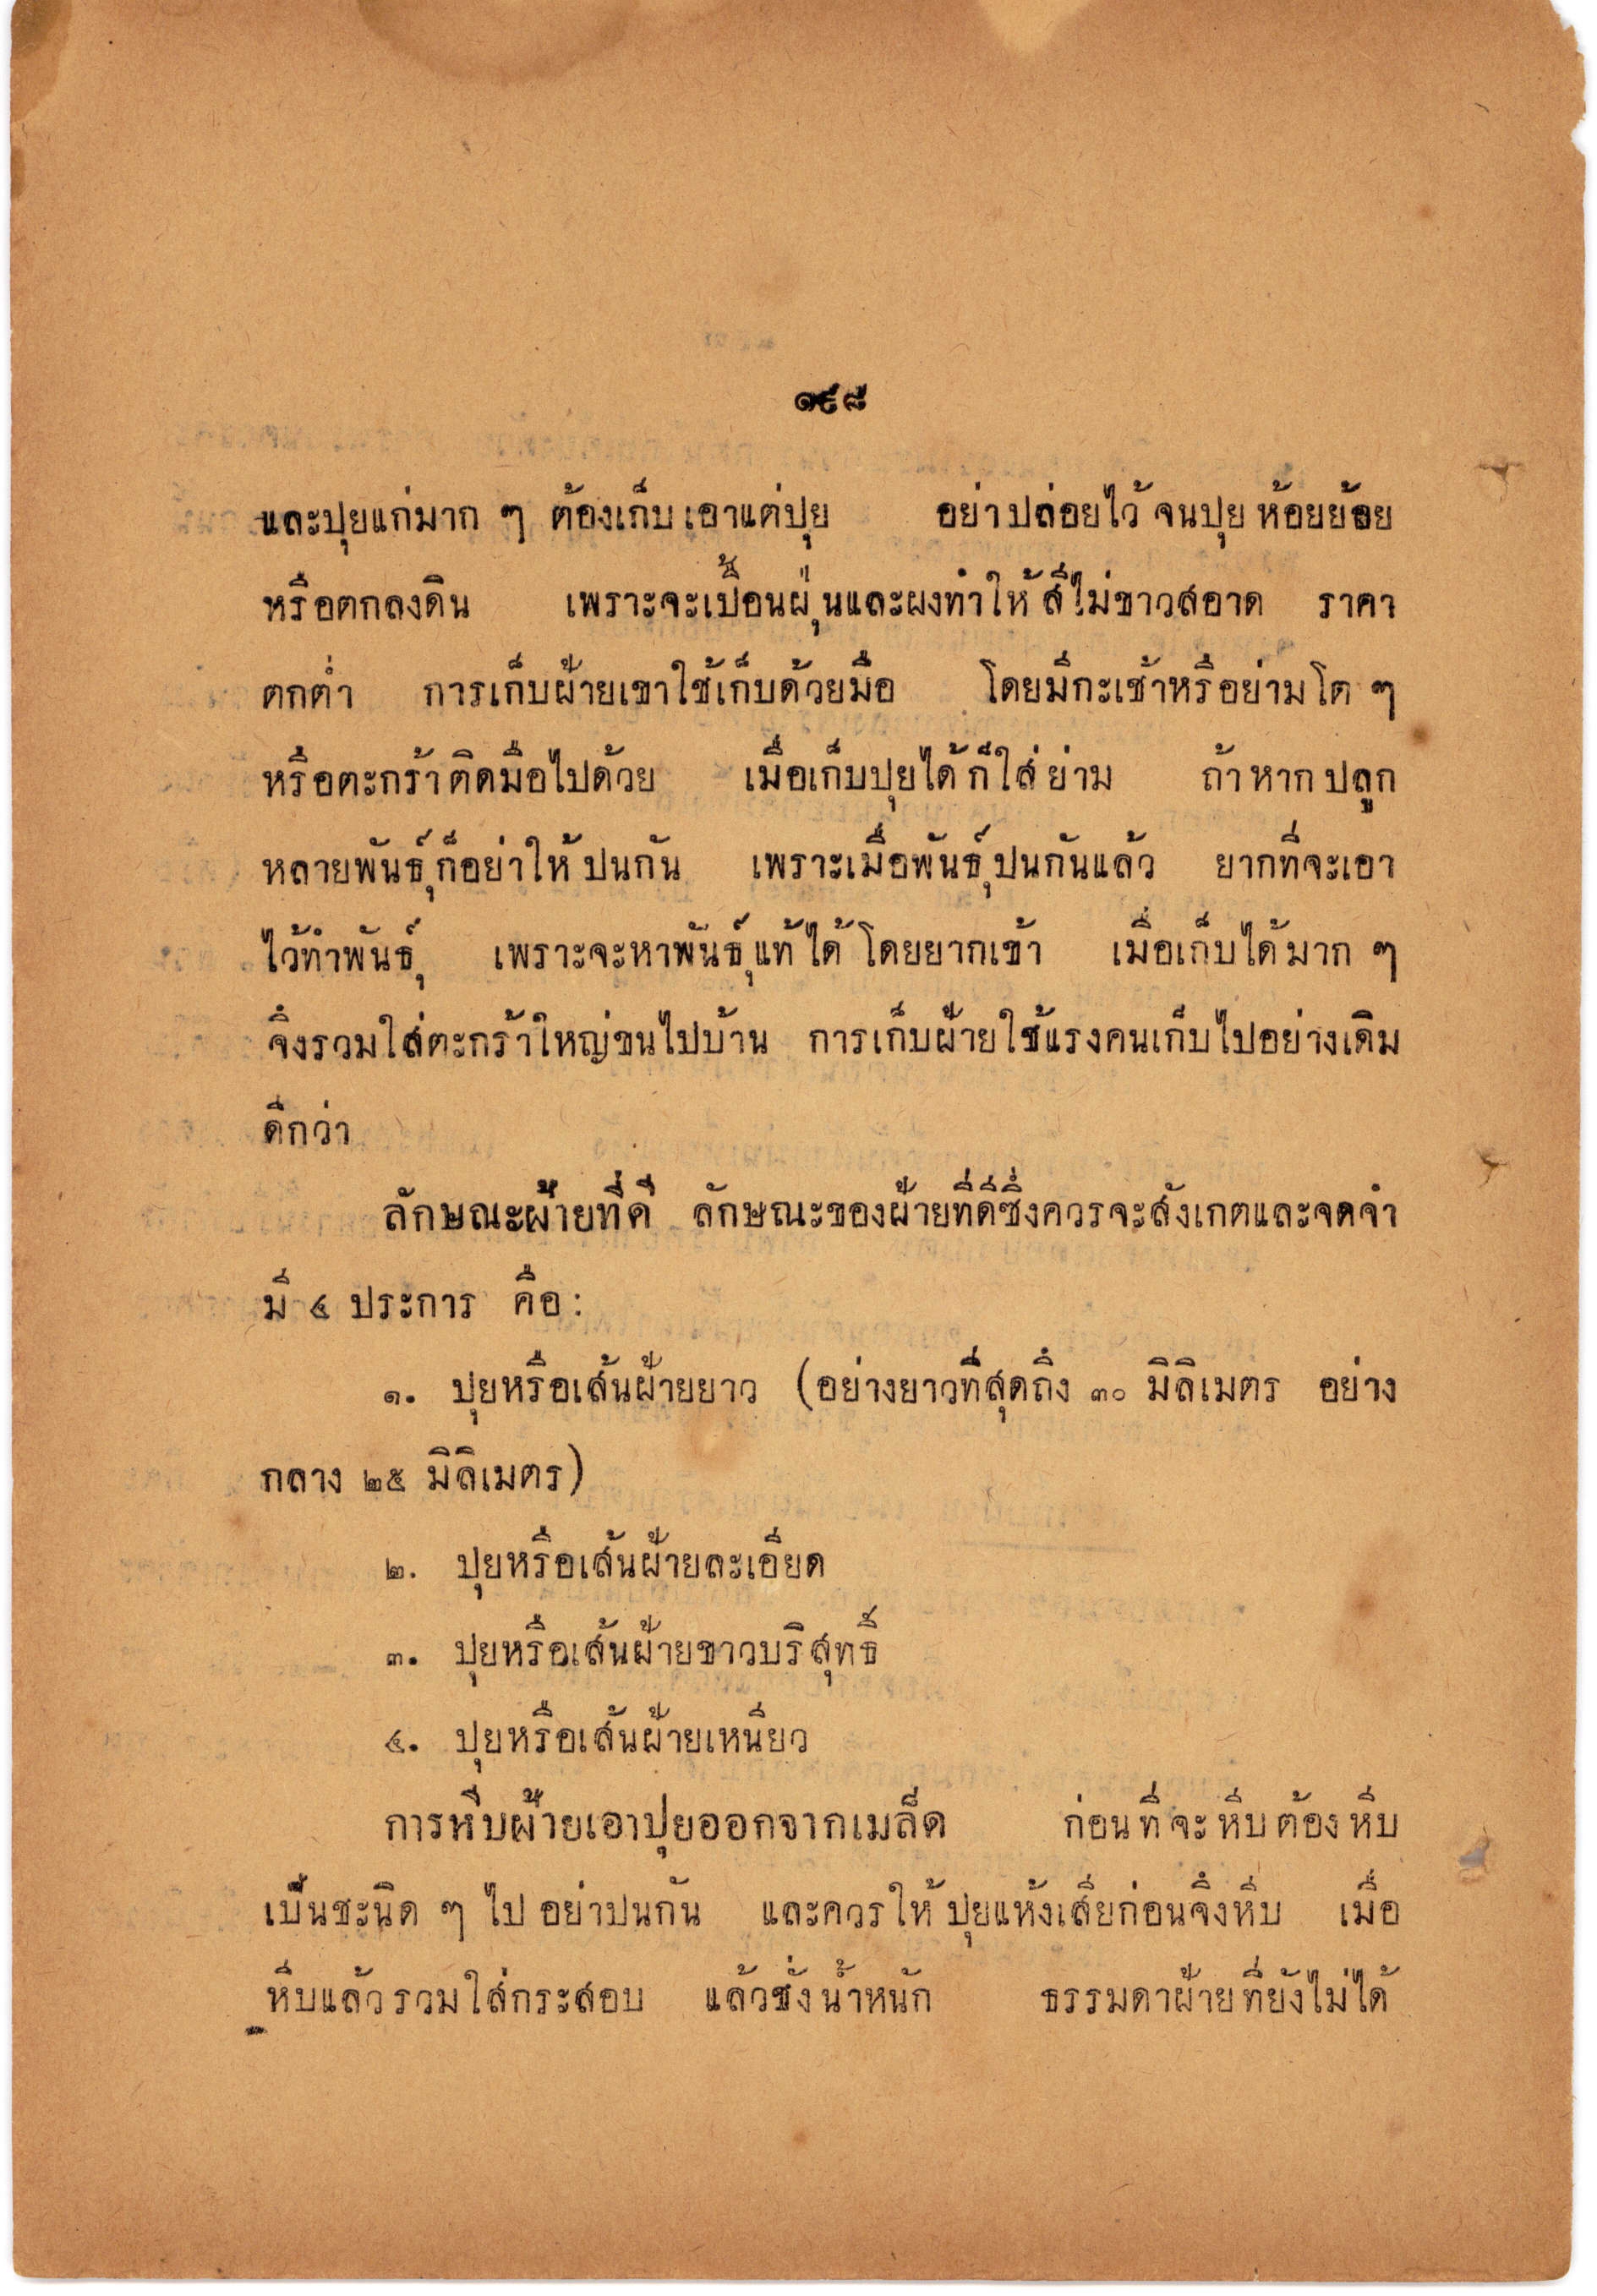 ๑๙๘
และปุยแก่มาก ๆ ต้องเก็บเอาแต่ปุย อย่าปล่อยไว้จนปุยห้อยย้อย
หรือตกลงดิน เพราะจะเปื้อนฝุ่นและผงทำให้สีไม่ขาวสอาด ราคา
ตกต่ำ การเก็บฝ้ายเขาใช้เก็บด้วยมือ โดยมีกะเช้าหรือย่ามโต ๆ
หรือตะกร้าติดมือไปด้วย เมื่อเก็บปุยได้ก็ใส่ย่าม ถ้าหากปลูก
หลายพันธุ์ก็อย่าให้ปนกัน เพราะเมื่อพันธุ์ปนกันแล้ว ยากที่จะเอา
ไว้ทำพันธุ์ เพราะจะหาพันธุ์แท้ได้โดยยากเข้า เมื่อเก็บได้มาก ๆ
จึงรวมใส่ตะกร้าใหญ่ขนไปบ้าน การเก็บฝ้ายใช้แรงคนเก็บไปอย่างเดิม
ดีกว่า
ลักษณะฝ้ายที่ดี ลักษณะของฝ้ายที่ดีซึ่งควรจะสังเกตและจดจำ
มี ๔ ประการ คือ:
๑. ปุยหรือเส้นฝ้ายยาว (อย่างยาวที่สุดถึง ๓๐ มิลิเมตร อย่าง
กลาง ๒๕ มิลิเมตร)
๒. ปุยหรือเส้นฝ้ายละเอียด
๓. ปุยหรือเส้นฝ้ายขาวบริสุทธิ์
๔. ปุยหรือเส้นฝ้ายเหนียว
การหีบฝ้ายเอาปุยออกจากเมล็ด ก่อนที่จะหีบต้องหีบ
เป็นชะนิด ๆ ไป อย่าปนกัน และควรให้ปุยแห้งเสียก่อนจึงหีบ เมื่อ
หีบแล้วรวมใส่กระสอบ แล้วชั่งน้ำหนัก ธรรมดาฝ้ายที่ยังไม่ได้